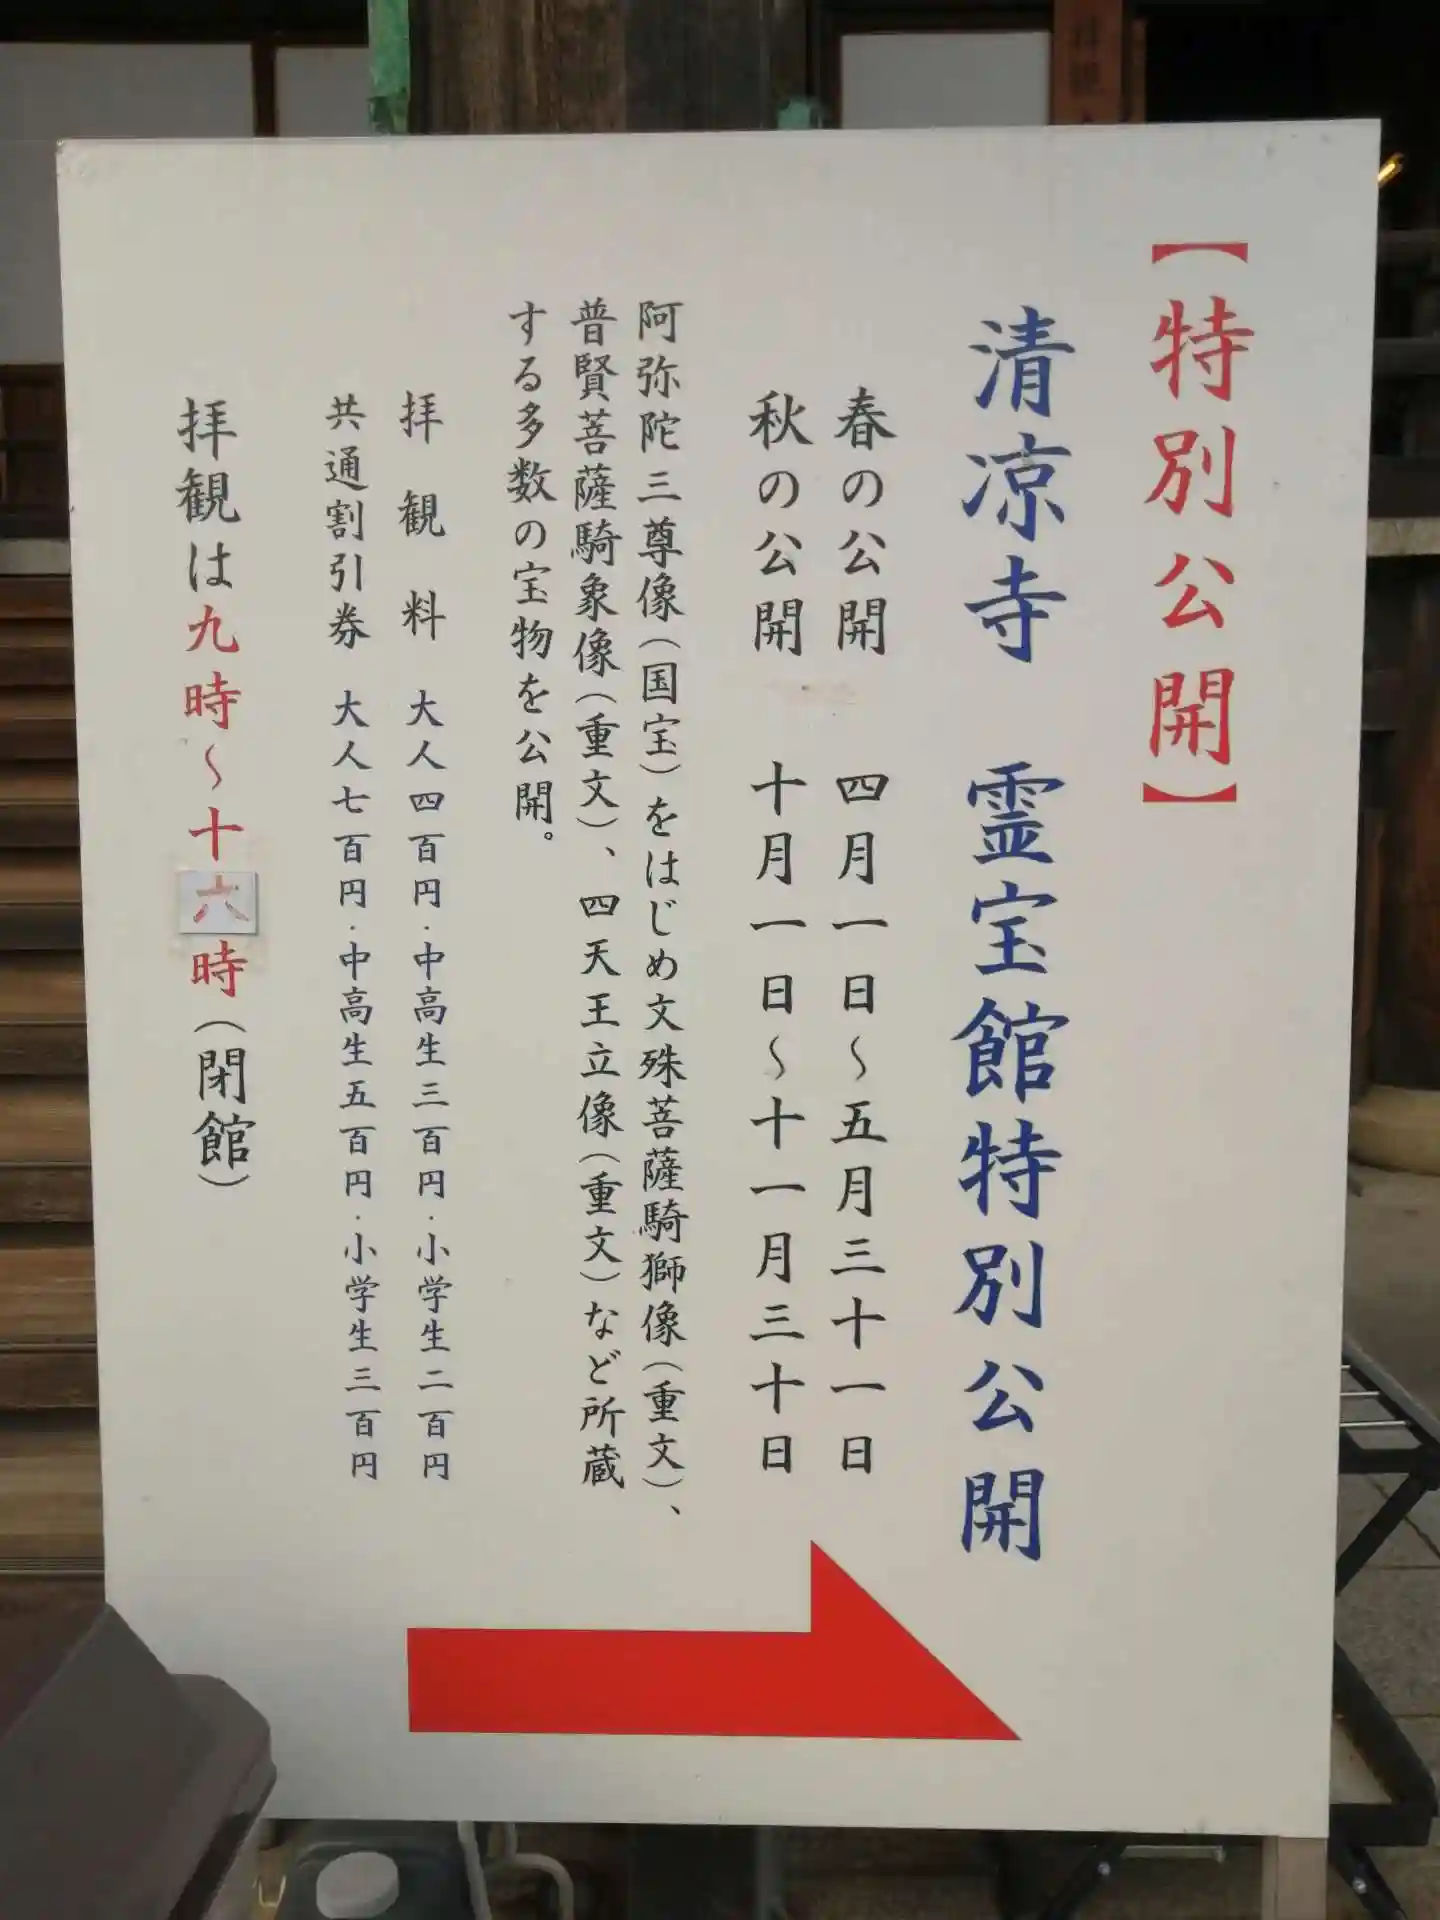 【特別公開】
清凉寺　霊宝館特別公開
春の公開　四月一日～五月三十一日
秋の公開　十月一日～十一月三十日
阿弥陀三尊像(国宝)をはじめ文殊菩薩騎獅像(重文)、
普賢菩薩騎象像(重文)、四天王立像(重文)など所蔵
する多数の宝物を公開。
拝観料　大人四百円・中高生三百円・小学生二百円
共通割引券　大人七百円・中高生五百円・小学生三百円
拝観は九時～十六時(閉館)